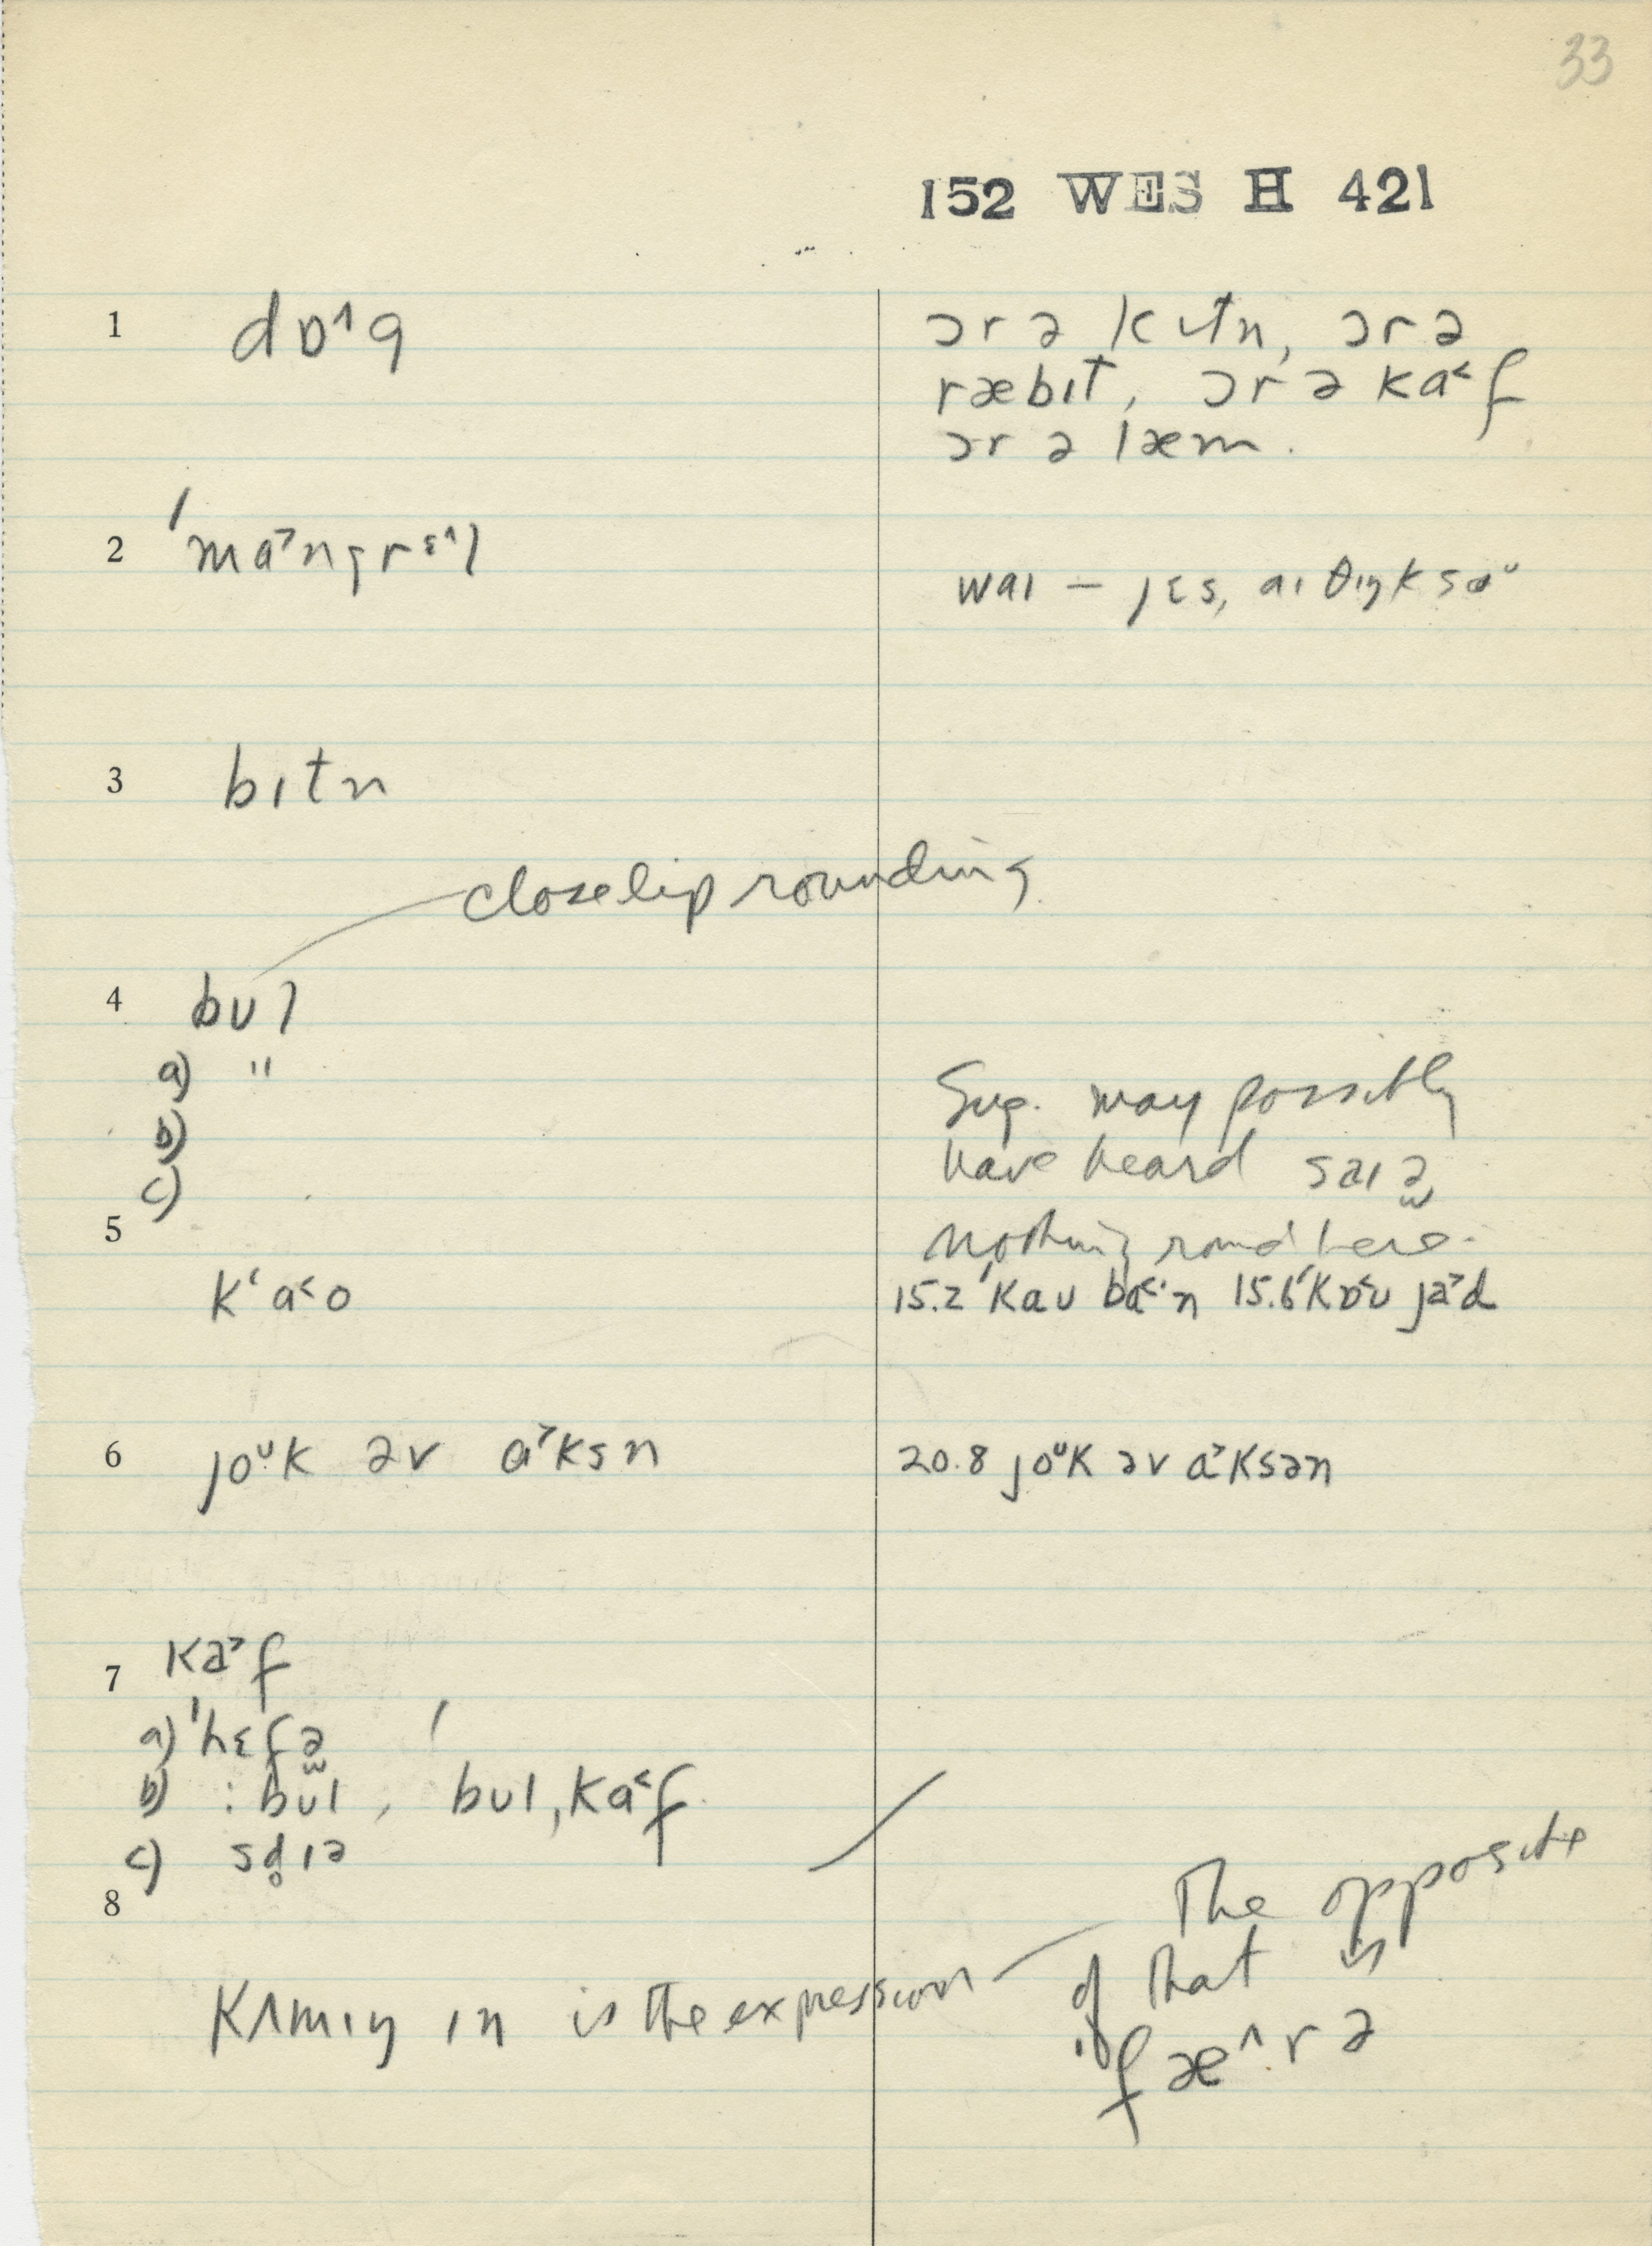 33
152 WES H 421
1 dɒ^g
ɔr ə kɪtn, ɔr ə
ræbɪt, ɔr ə ka˂f
ɔr ə læm.
2 ˈma˃ngrɛ^l
waɪ — jɛs, aɪ θɪŋk so
3 bɪtn
close lip rounding
4 bʊl
a) "
b)
c)
Sug. may possibly
have heard saɪə̯
nothing round here.
5
kʻa˂o
15.2 ˈkaʊ ba˂·n 15.6 ˈkɒ˂ʊ ja˃d
6 joᶷk əv ɑ˃ksn
20.8 joᶷk əv ɑ˃ksən
7 ka˃f
a) ˈhɛfə̯
b) : bʊl, bʊl, ka˂f
c) sd̥ɪə
8
kʌmɪŋ ɪn is the expression
The opposite
of that is
fæ^rə